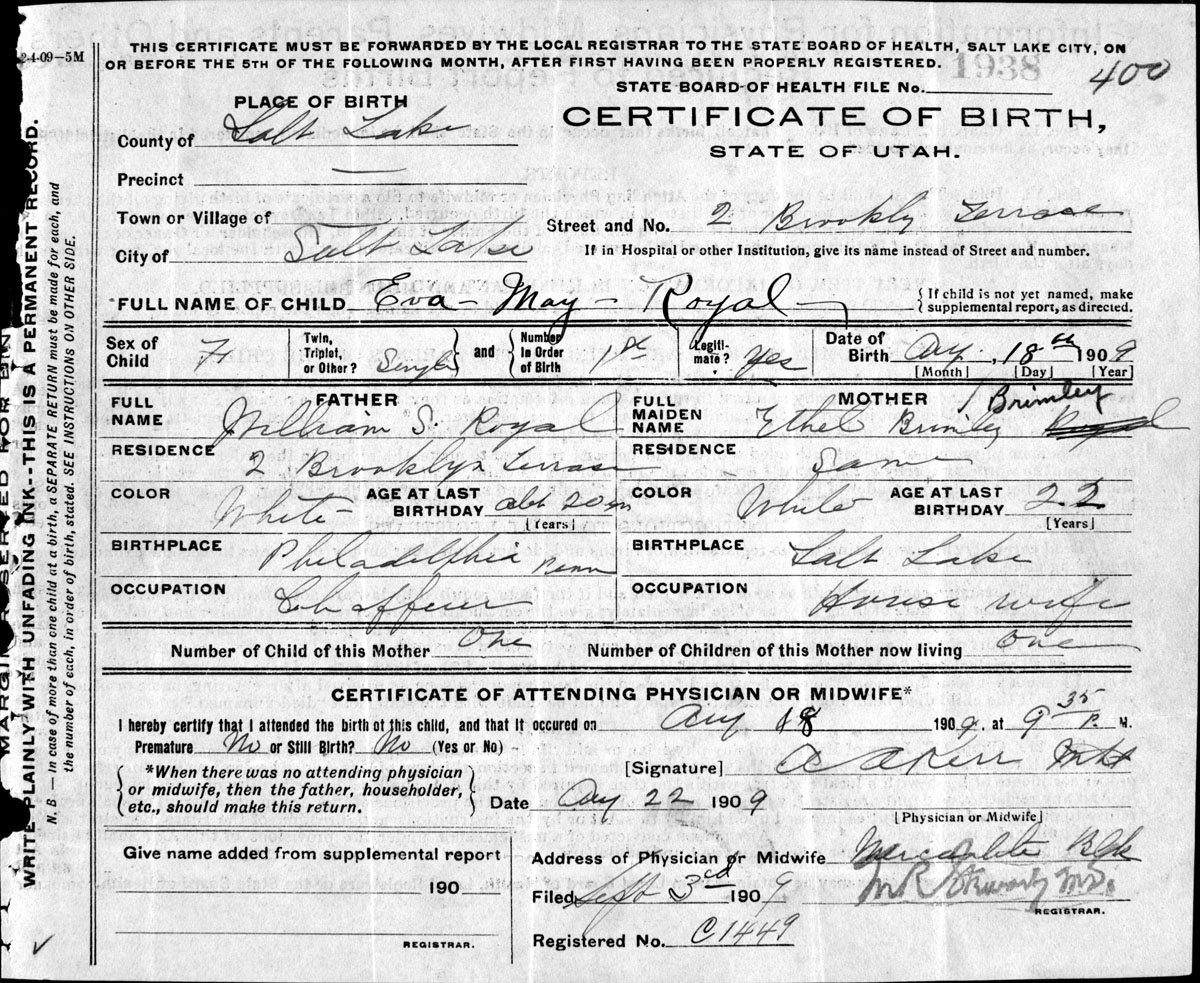 2-4-09-5M
THIS CERTIFICATE MUST BE FORWARDED BY THE LOCAL REGISTRAR TO THE STATE BOARD OF HEALTH, SALT LAKE CITY, ON
OR BEFORE THE 5TH OF THE FOLLOWING MONTH, AFTER FIRST HAVING BEEN PROPERLY REGISTERED.
1938
400
STATE BOARD OF HEALTH FILE No.
PLACE OF BIRTH
CERTIFICATE OF BIRTH,
STATE OF UTAH.
County of Salt Lake
Precinct —
Town or Village of
Street and No. 2 Brookly Terrace
City of Salt Lake
If in Hospital or other Institution, give its name instead of Street and number.
*FULL NAME OF CHILD Eva - May - Royal
{ If child is not yet named, make
supplemental report, as directed.
Sex of Child F
Twin, Triplet, or Other? Single } and { Number in Order of Birth
Legiti-mate? Yes
Date of Birth Aug, 18th 1909
[Month] [Day] [Year]
FATHER
FULL NAME William S. Royal
RESIDENCE 2 Brooklyn Terrace
COLOR White AGE AT LAST BIRTHDAY abt 20
[Years]
BIRTHPLACE Philadelphia Penn
OCCUPATION Chafferer
MOTHER
FULL MAIDEN NAME Ethel Brimley Royal
Brimley
RESIDENCE Same
COLOR White AGE AT LAST BIRTHDAY 22
[Years]
BIRTHPLACE Salt Lake
OCCUPATION House wife
Number of Child of this Mother One
Number of Children of this Mother now living one
CERTIFICATE OF ATTENDING PHYSICIAN OR MIDWIFE*
I hereby certify that I attended the birth of this child, and that it occured on Aug 18 1909, at 9 35 P. M.
Premature No or Still Birth? No (Yes or No)
{ *When there was no attending physician
or midwife, then the father, householder,
etc., should make this return. }
[Signature] A A Kerr
Date Aug 22 1909
[Physician or Midwife]
Give name added from supplemental report
190
REGISTRAR.
Address of Physician or Midwife Mercantile Blk
Filed Sept 3rd 1909
M.D.
REGISTRAR.
Registered No. C1449
MARGIN RESERVED FOR BIN
WRITE PLAINLY WITH UNFADING INK--THIS IS A PERMANENT RECORD.
N. B. — In case of more than one child at a birth, a SEPARATE RETURN must be made for each, and
the number of each, in order of birth, stated. SEE INSTRUCTIONS ON OTHER SIDE.